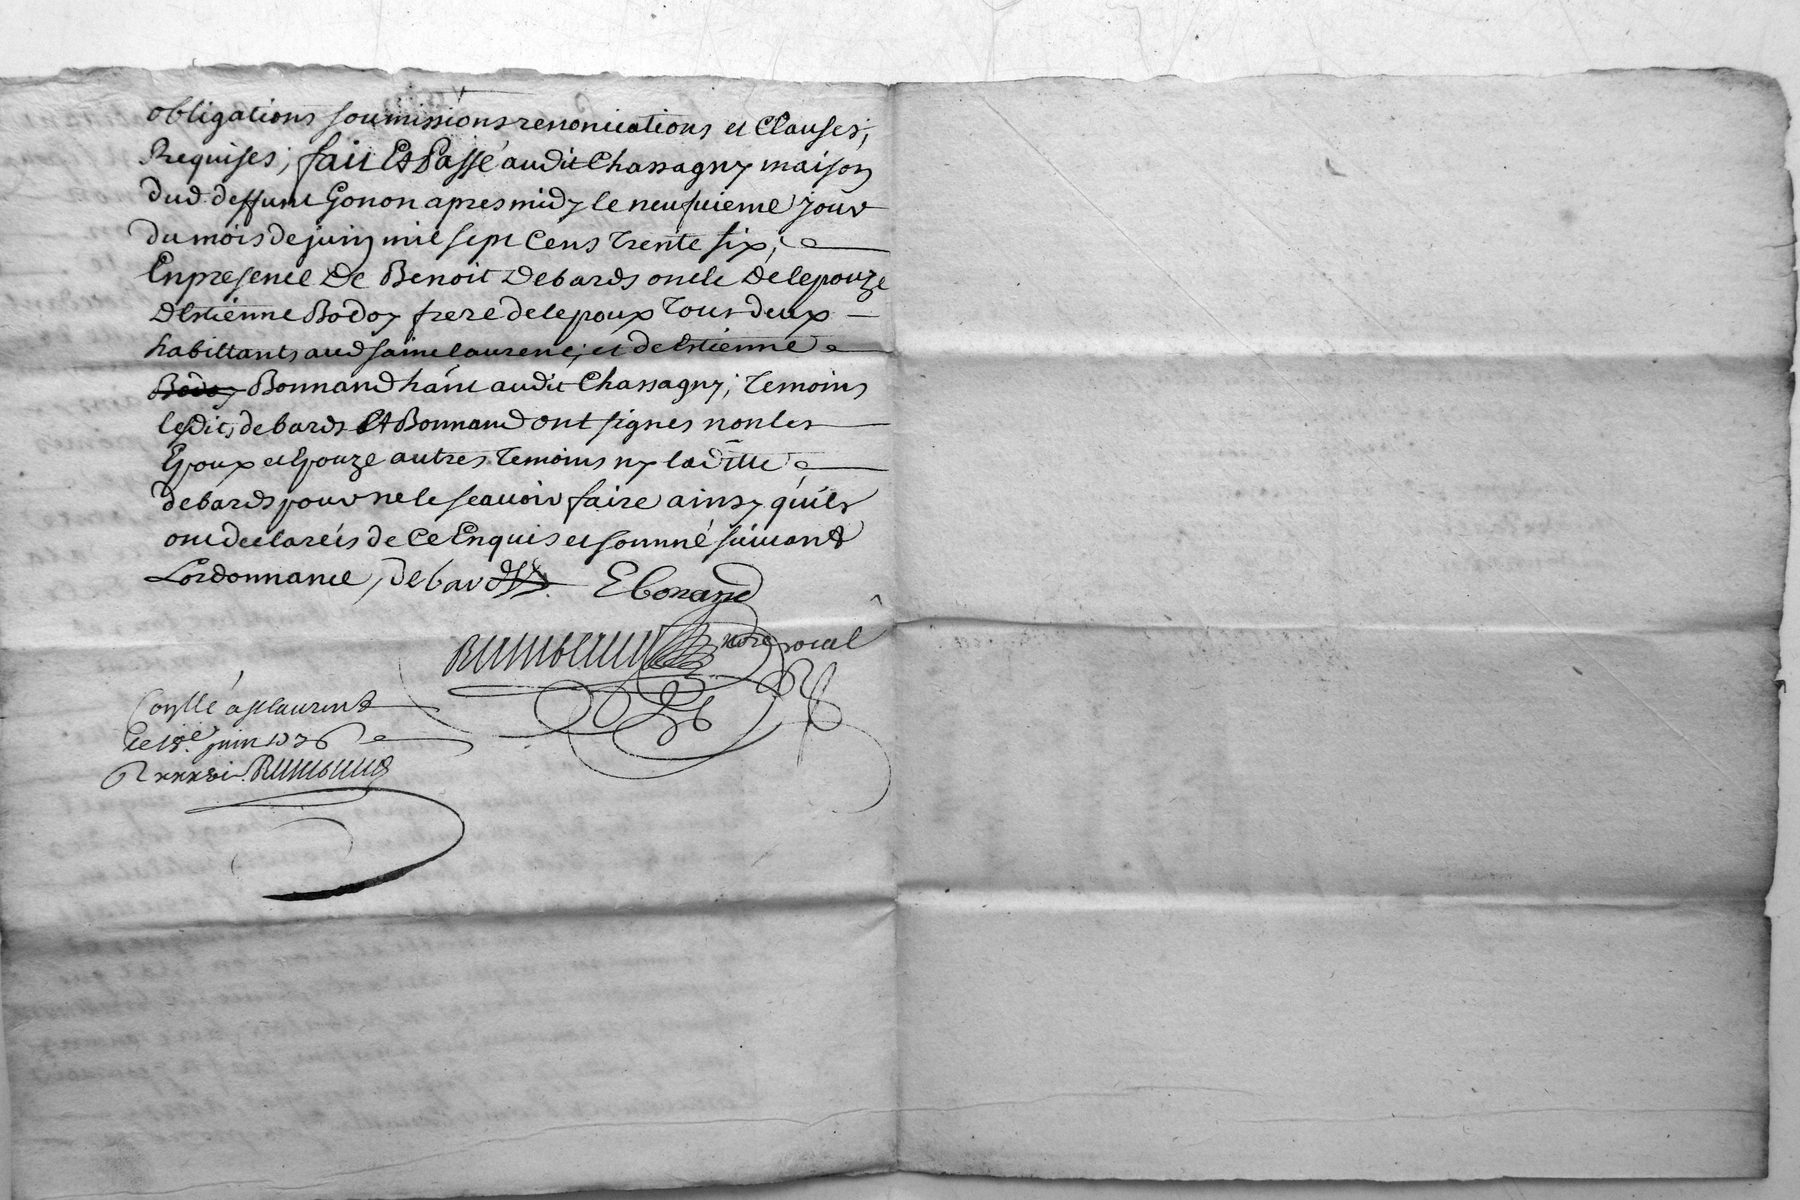 obligations soumissions renonciations et Clauses;
Requises; fait Et Passé audit Chassagny maison
dud deffunt Gonon apres midy le neufuieme jour
du mois de juin mil sept Cens Trente six;
En presence De Benoit Debards oncle De lepouze
D'Estienne Bodoy frere de lepoux Tous deux
habittants aud saint laurent; et de Estienne
Bodoy Bonnand ha\u0303nt audit Chassagny; Temoins
lesdits debards Et Bonnand ont signes non les
Epoux et Epouze autres Temoins ny laditte
debards pour ne le scauoir faire ainsy quils
ont declareés de Ce Enquis et sommé suiuant
Lordonnance, debards EBonand
nore royal
Conllé a st laurent
le 18e juin 1736